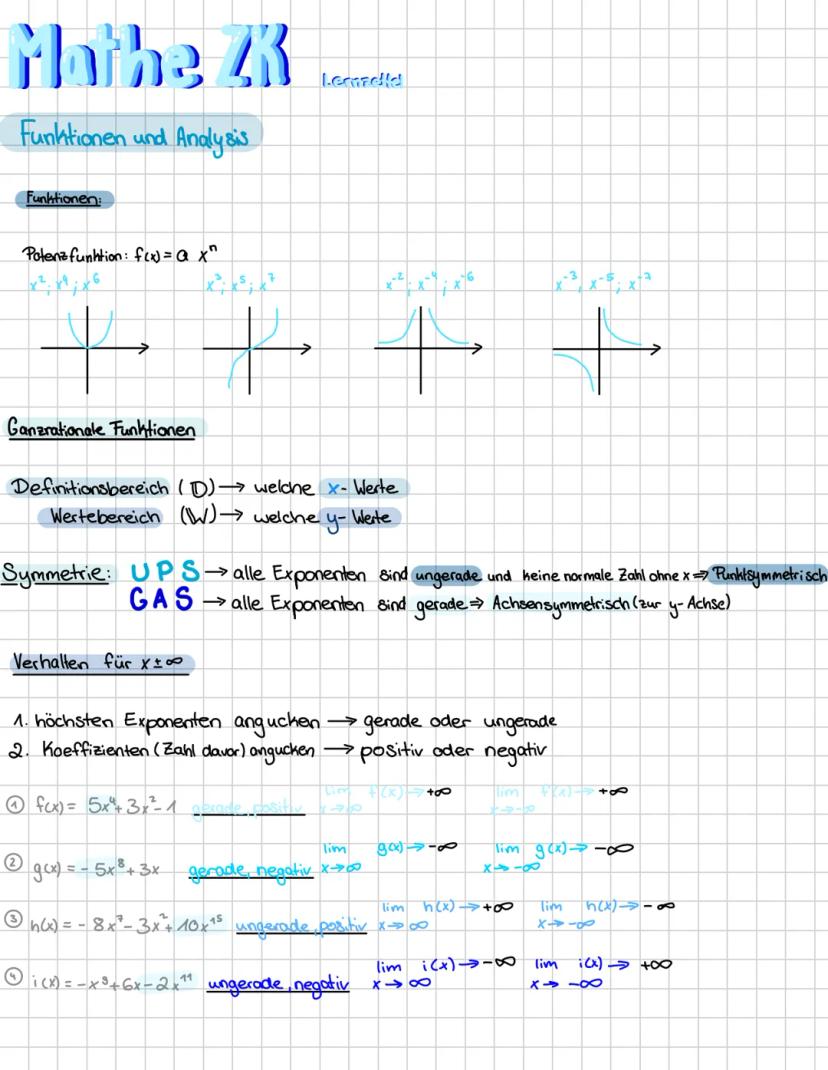 Mathe ZK Lernzettel
Funktionen und Analysis
Funktionen:
Potenzfunktion: f(x) = a xⁿ
x²; x⁴; x⁶ x³; x⁵; x⁷ x⁻²; x⁻⁴; x⁻⁶ x⁻³, x⁻⁵; x⁻⁷
Ganzrationale Funktionen
Definitionsbereich (𝔻) → welche x-Werte
Wertebereich (𝕎) → welche y-Werte
Symmetrie: UPS → alle Exponenten sind ungerade und keine normale Zahl ohne x ⇒ Punktsymmetrisch
GAS → alle Exponenten sind gerade ⇒ Achsensymmetrisch (zur y-Achse)
Verhalten für x ± ∞
1. höchsten Exponenten angucken → gerade oder ungerade
2. Koeffizienten (Zahl davor) angucken → positiv oder negativ
① f(x) = 5x⁴ + 3x² - 1 gerade, positiv lim x→∞ f(x) → +∞ lim x→-∞ f(x) → +∞
② g(x) = - 5x⁸ + 3x gerade, negativ lim x→∞ g(x) → -∞ lim x→-∞ g(x) → -∞
③ h(x) = - 8x⁷ - 3x² + 10x¹⁵ ungerade, positiv lim x→∞ h(x) → +∞ lim x→-∞ h(x) → -∞
④ i(x) = -x⁹ + 6x - 2x¹¹ ungerade, negativ lim x→∞ i(x) → -∞ lim x→-∞ i(x) → +∞